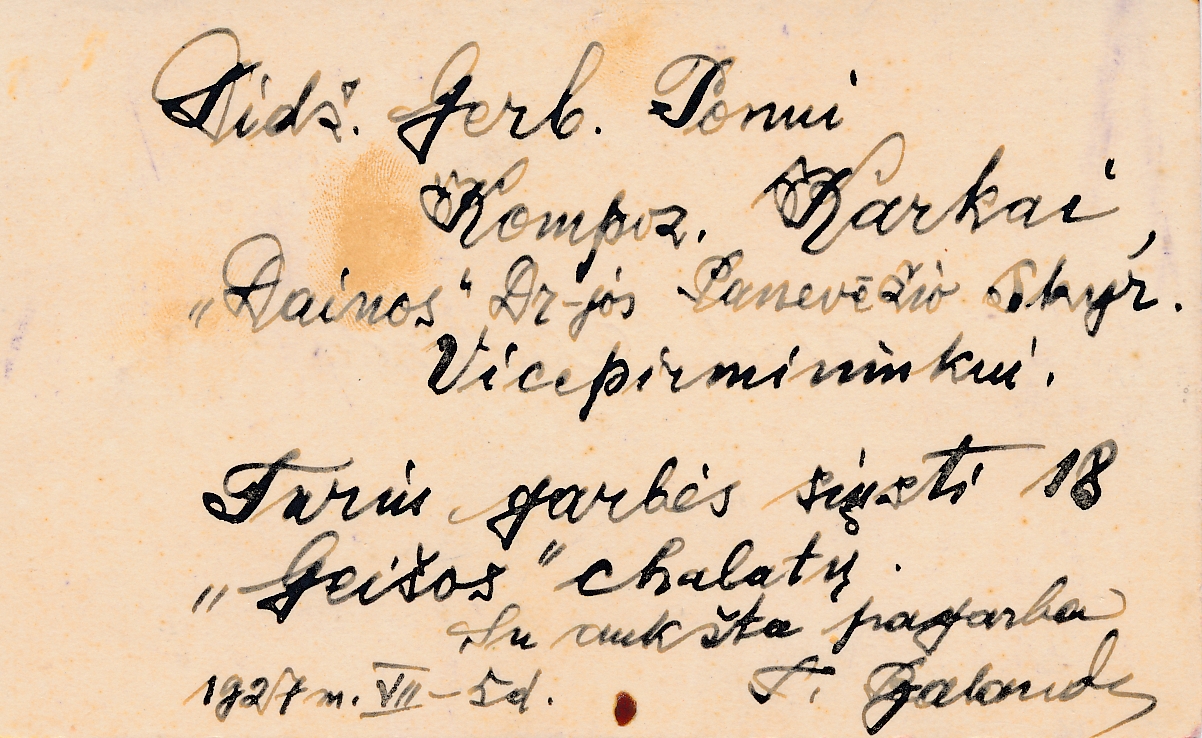 Didž. Gerb. Ponui
Kompoz. Karkai,
„Dainos“ Dr-jos Panevėžio Skyr.
Vicepirmininkui.
Turiu garbės siųsti 18
„Geišos“ chalatų.
Su aukšta pagarba
1927 m. VII – 5 d. T.